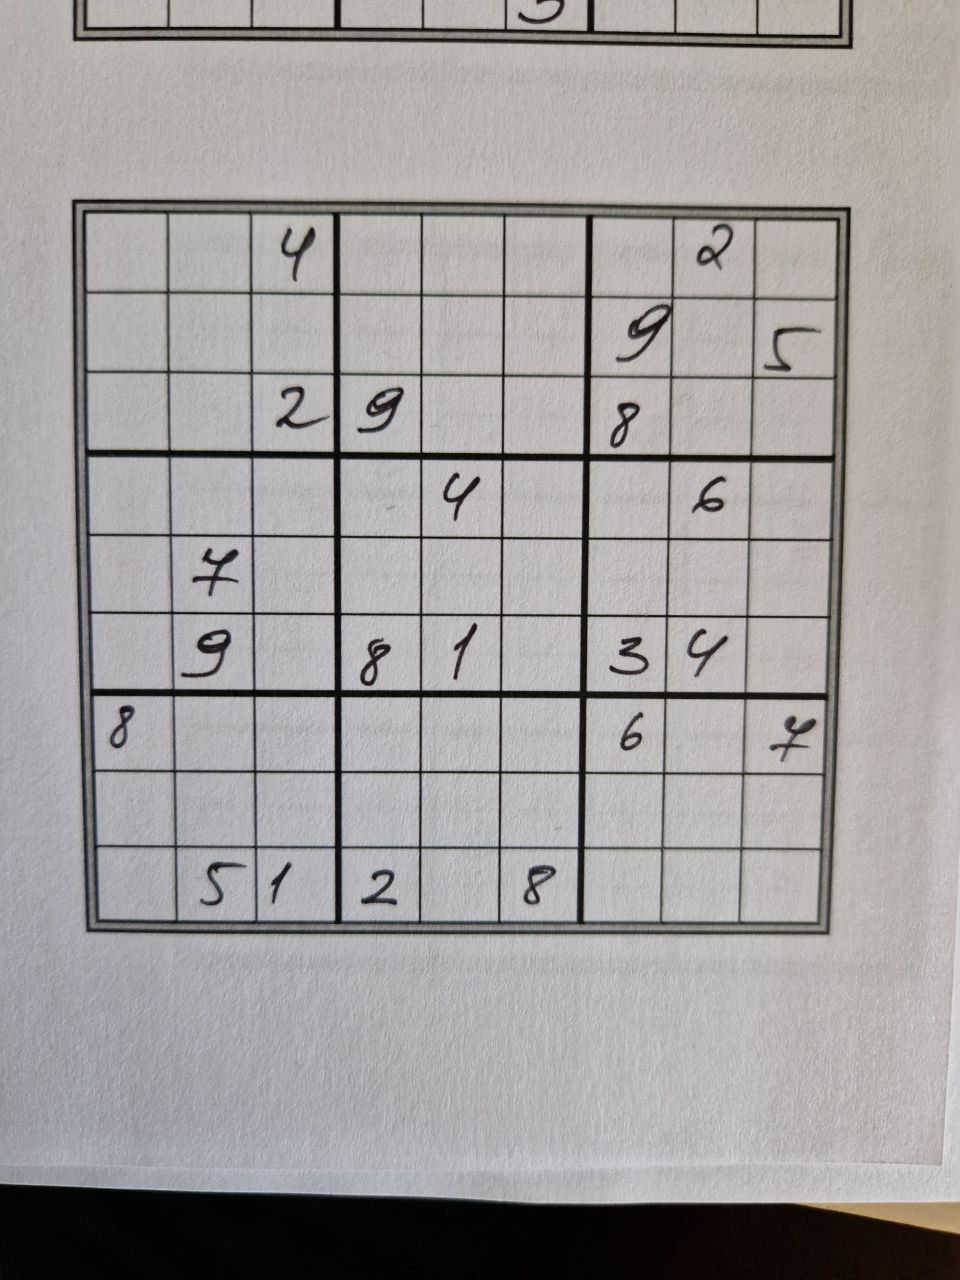 4 2
9 5
2 9 8
4 6
7
9 8 1 3 4
8 6 7
5 1 2 8